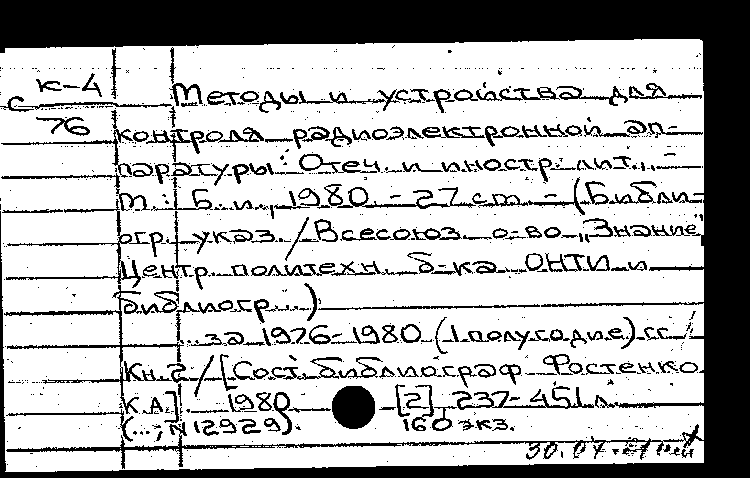 с К-4
76
Методы и устройства для
контроля радиоэлектронной ап-
паратуры: Отеч. и иностр. лит... -
М.: Б. и., 1980. - 27 см. - (Библи-
огр. указ. / Всесоюз. о-во „Знание",
Центр. политехн. б-ка ОНТИ и
библиогр...)
...за 1976-1980 (1 полугодие) гг /
Кн. 2 / [Сост. библиограф Фостенко
К.А.]. 1980. - [2], 237-451 л.
(...; N 12929). 160 экз.
30.04.81